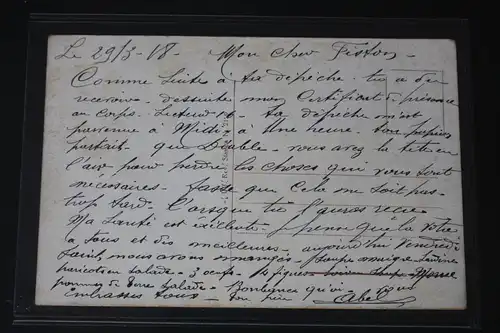 Le 29/3-18 - Mon cher Fiston
Comme suite à ta dépêche - tu a du
recevoir - desuite mon Certificat de présence
au corps. ta dépêche m'est
parvenue à Midi à Une heure - ton
partait - que Diable - vous avez la tete en
l'air pour perdre les choses qui vous sont
nécessaires - faste que cela ne soit pas
trop tard - l'orsque tu l'auras recu
Ma Santé est exellente - pense que la votre
a tous et des meilleures - aujourd'hui Vendredi
Saint, nous avons mangés - Soupe
aricots en salade - 3 oeufs - figues
pommes de terre Salade - qu'oi
embrasses tous - ton père Abel